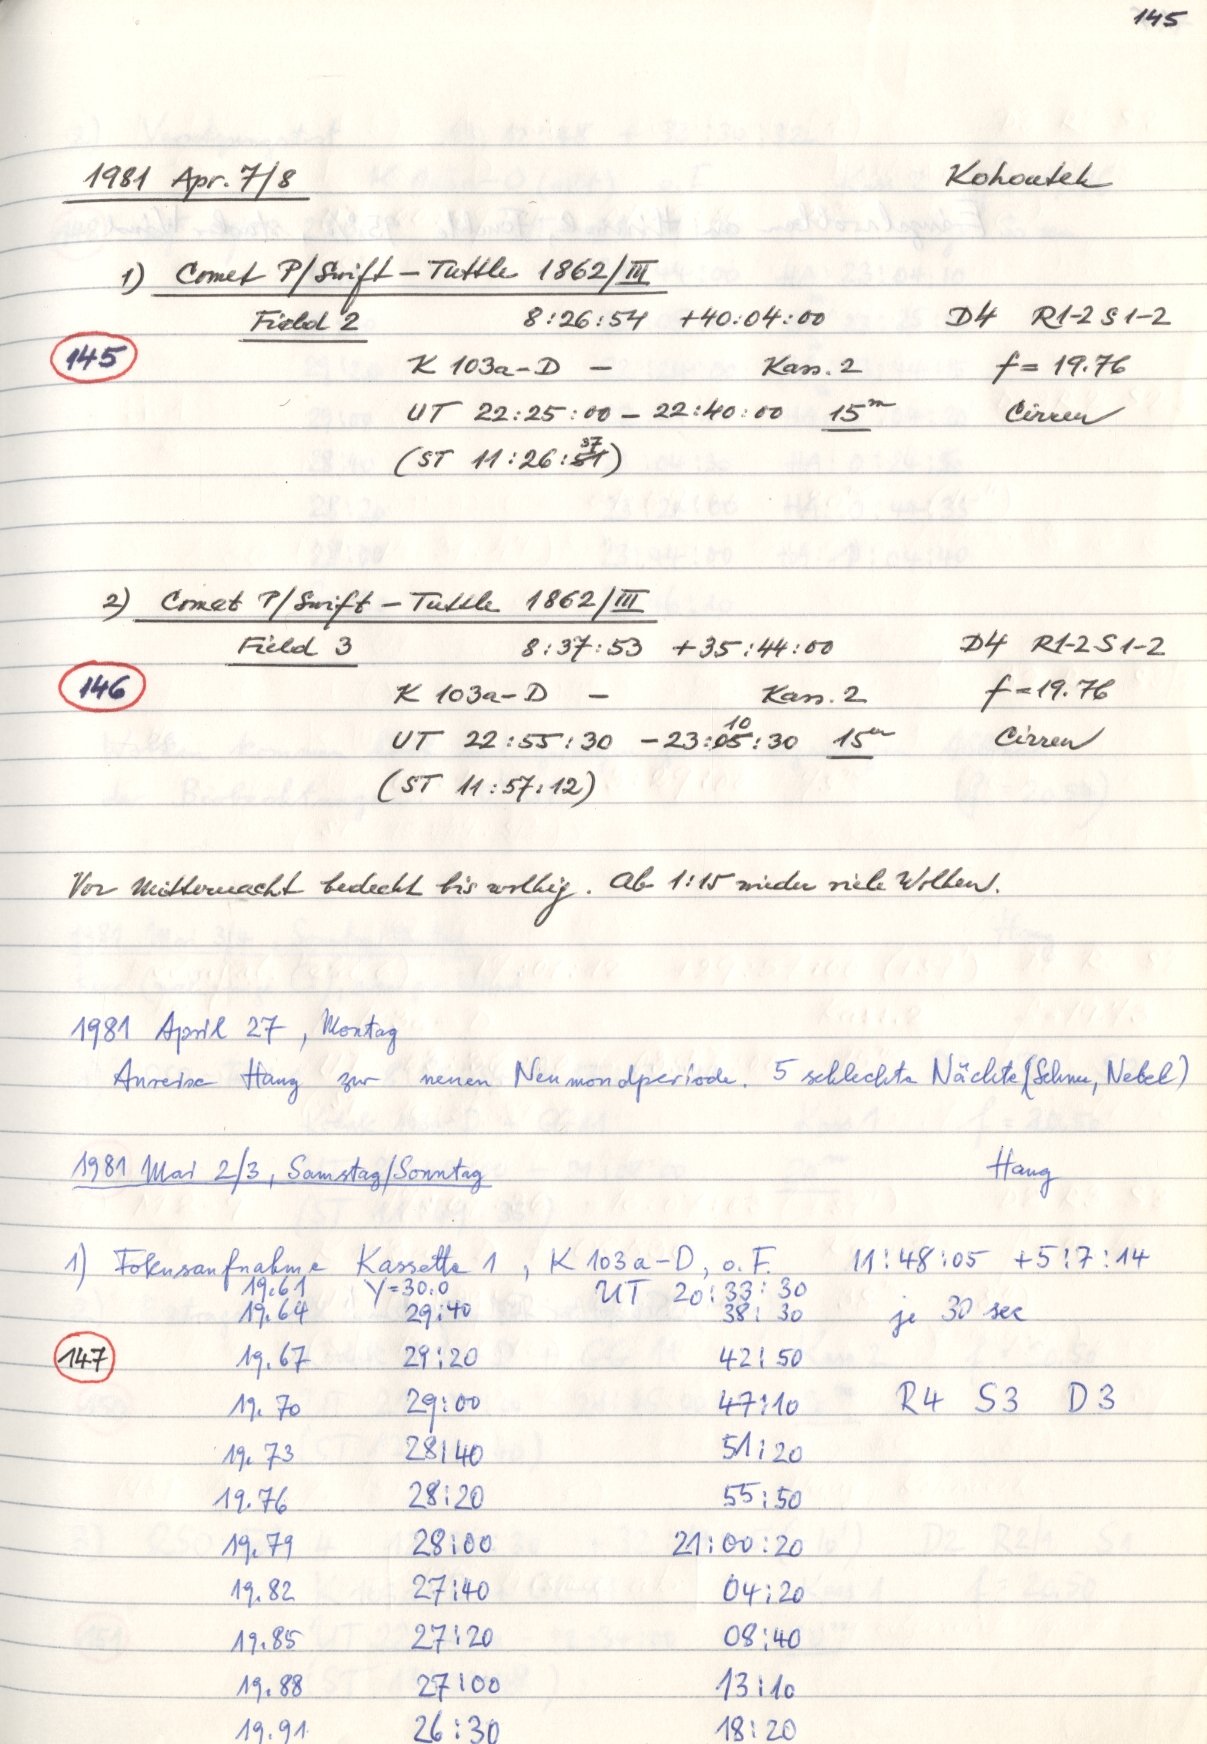 145
1981 Apr. 7/8 Kohoutek
1) Comet P/Swift-Tuttle 1862/III
Field 2 8:26:54 +40:04:00 D4 R1-2 S1-2
145 K 103a-D - Kass. 2 f = 19.76
UT 22:25:00 - 22:40:00 15m Cirren
(ST 11:26:37)
2) Comet P/Swift-Tuttle 1862/III
Field 3 8:37:53 +35:44:00 D4 R1-2 S1-2
146 K 103a-D - Kass. 2 f = 19.76
UT 22:55:30 - 23:10:30 15m Cirren
(ST 11:57:12)
Vor Mitternacht bedeckt bis wolkig. Ab 1:15 wieder viele Wolken.
1981 April 27, Montag
Anreise Haug zur neuen Neumondperiode. 5 schlechte Nächte (Schnee, Nebel)
1981 Mai 2/3, Samstag/Sonntag Haug
1) Fokusaufnahme Kassette 1, K 103a-D, o.F. 11:48:05 +5:7:14
19.61 Y=30.0 UT 20:33:30
19.64 29:40 38:30 je 30 sec
147 19.67 29:20 42:50
19.70 29:00 47:10 R4 S3 D3
19.73 28:40 51:20
19.76 28:20 55:50
19.79 28:00 21:00:20
19.82 27:40 04:20
19.85 27:20 08:40
19.88 27:00 13:10
19.91 26:30 18:20